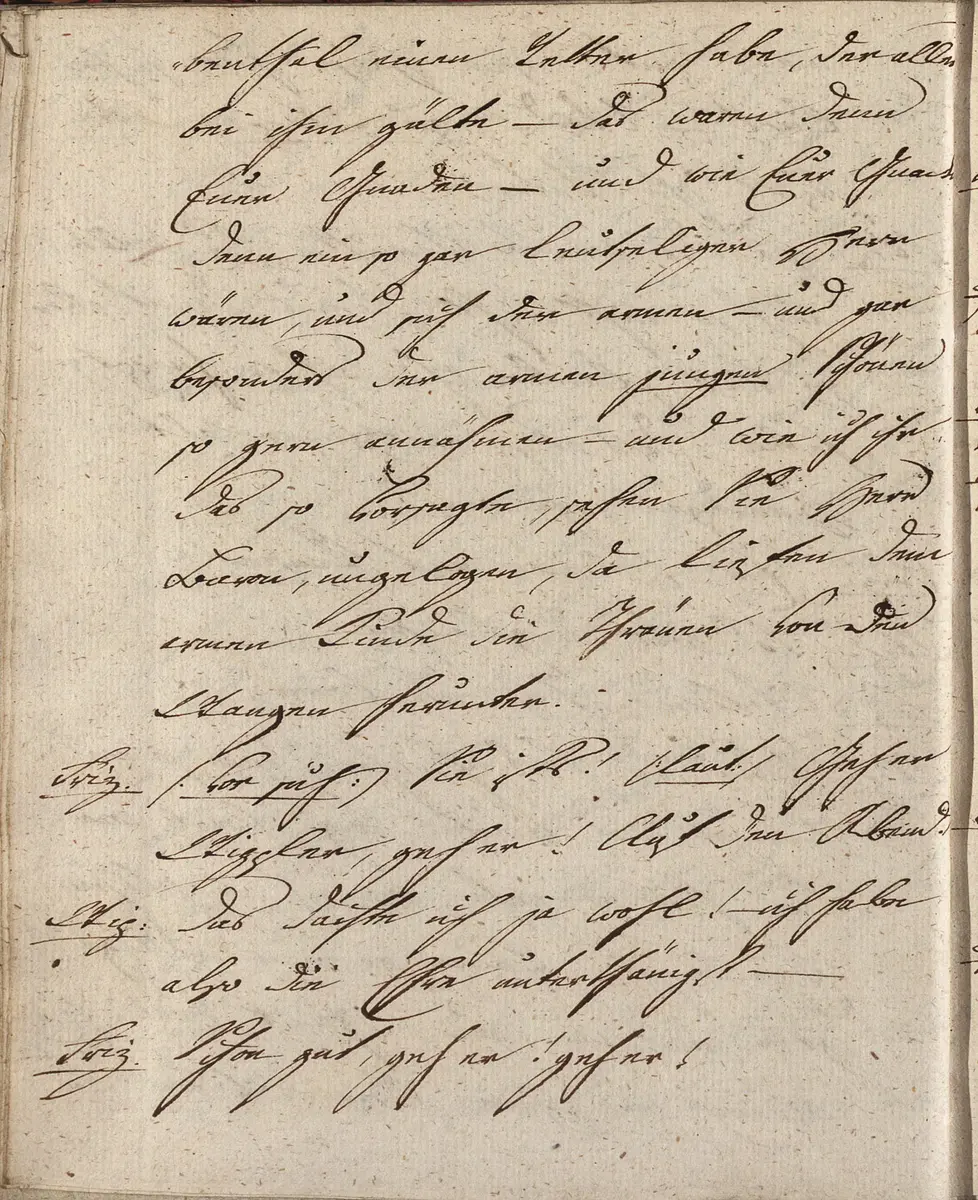 benthal einen Vetter habe, der alles
bei ihm gälte – das waren denn
Euer Gnaden – und wie Euer Gnad
denn ein so gar leutseliger Herr
wären, und sich der armen – und gar
besonders der armen jungen Schönen
so gern annähmen – und wie ich ihr
das so vorsagte, sehen Sie Herr
Baron, ungelogen, da liefen dem
armen Kinde die Thränen von den
Wangen herunter.
Friz. (: vor sich :) Sie ists! (: laut :) Geh er
Wippler, geh er! Auf den Abend.
Wip: Das dachte ich ja wohl! – ich habe
also die Ehre unterthänigst —
Friz. Schon gut, geh er! geh er!